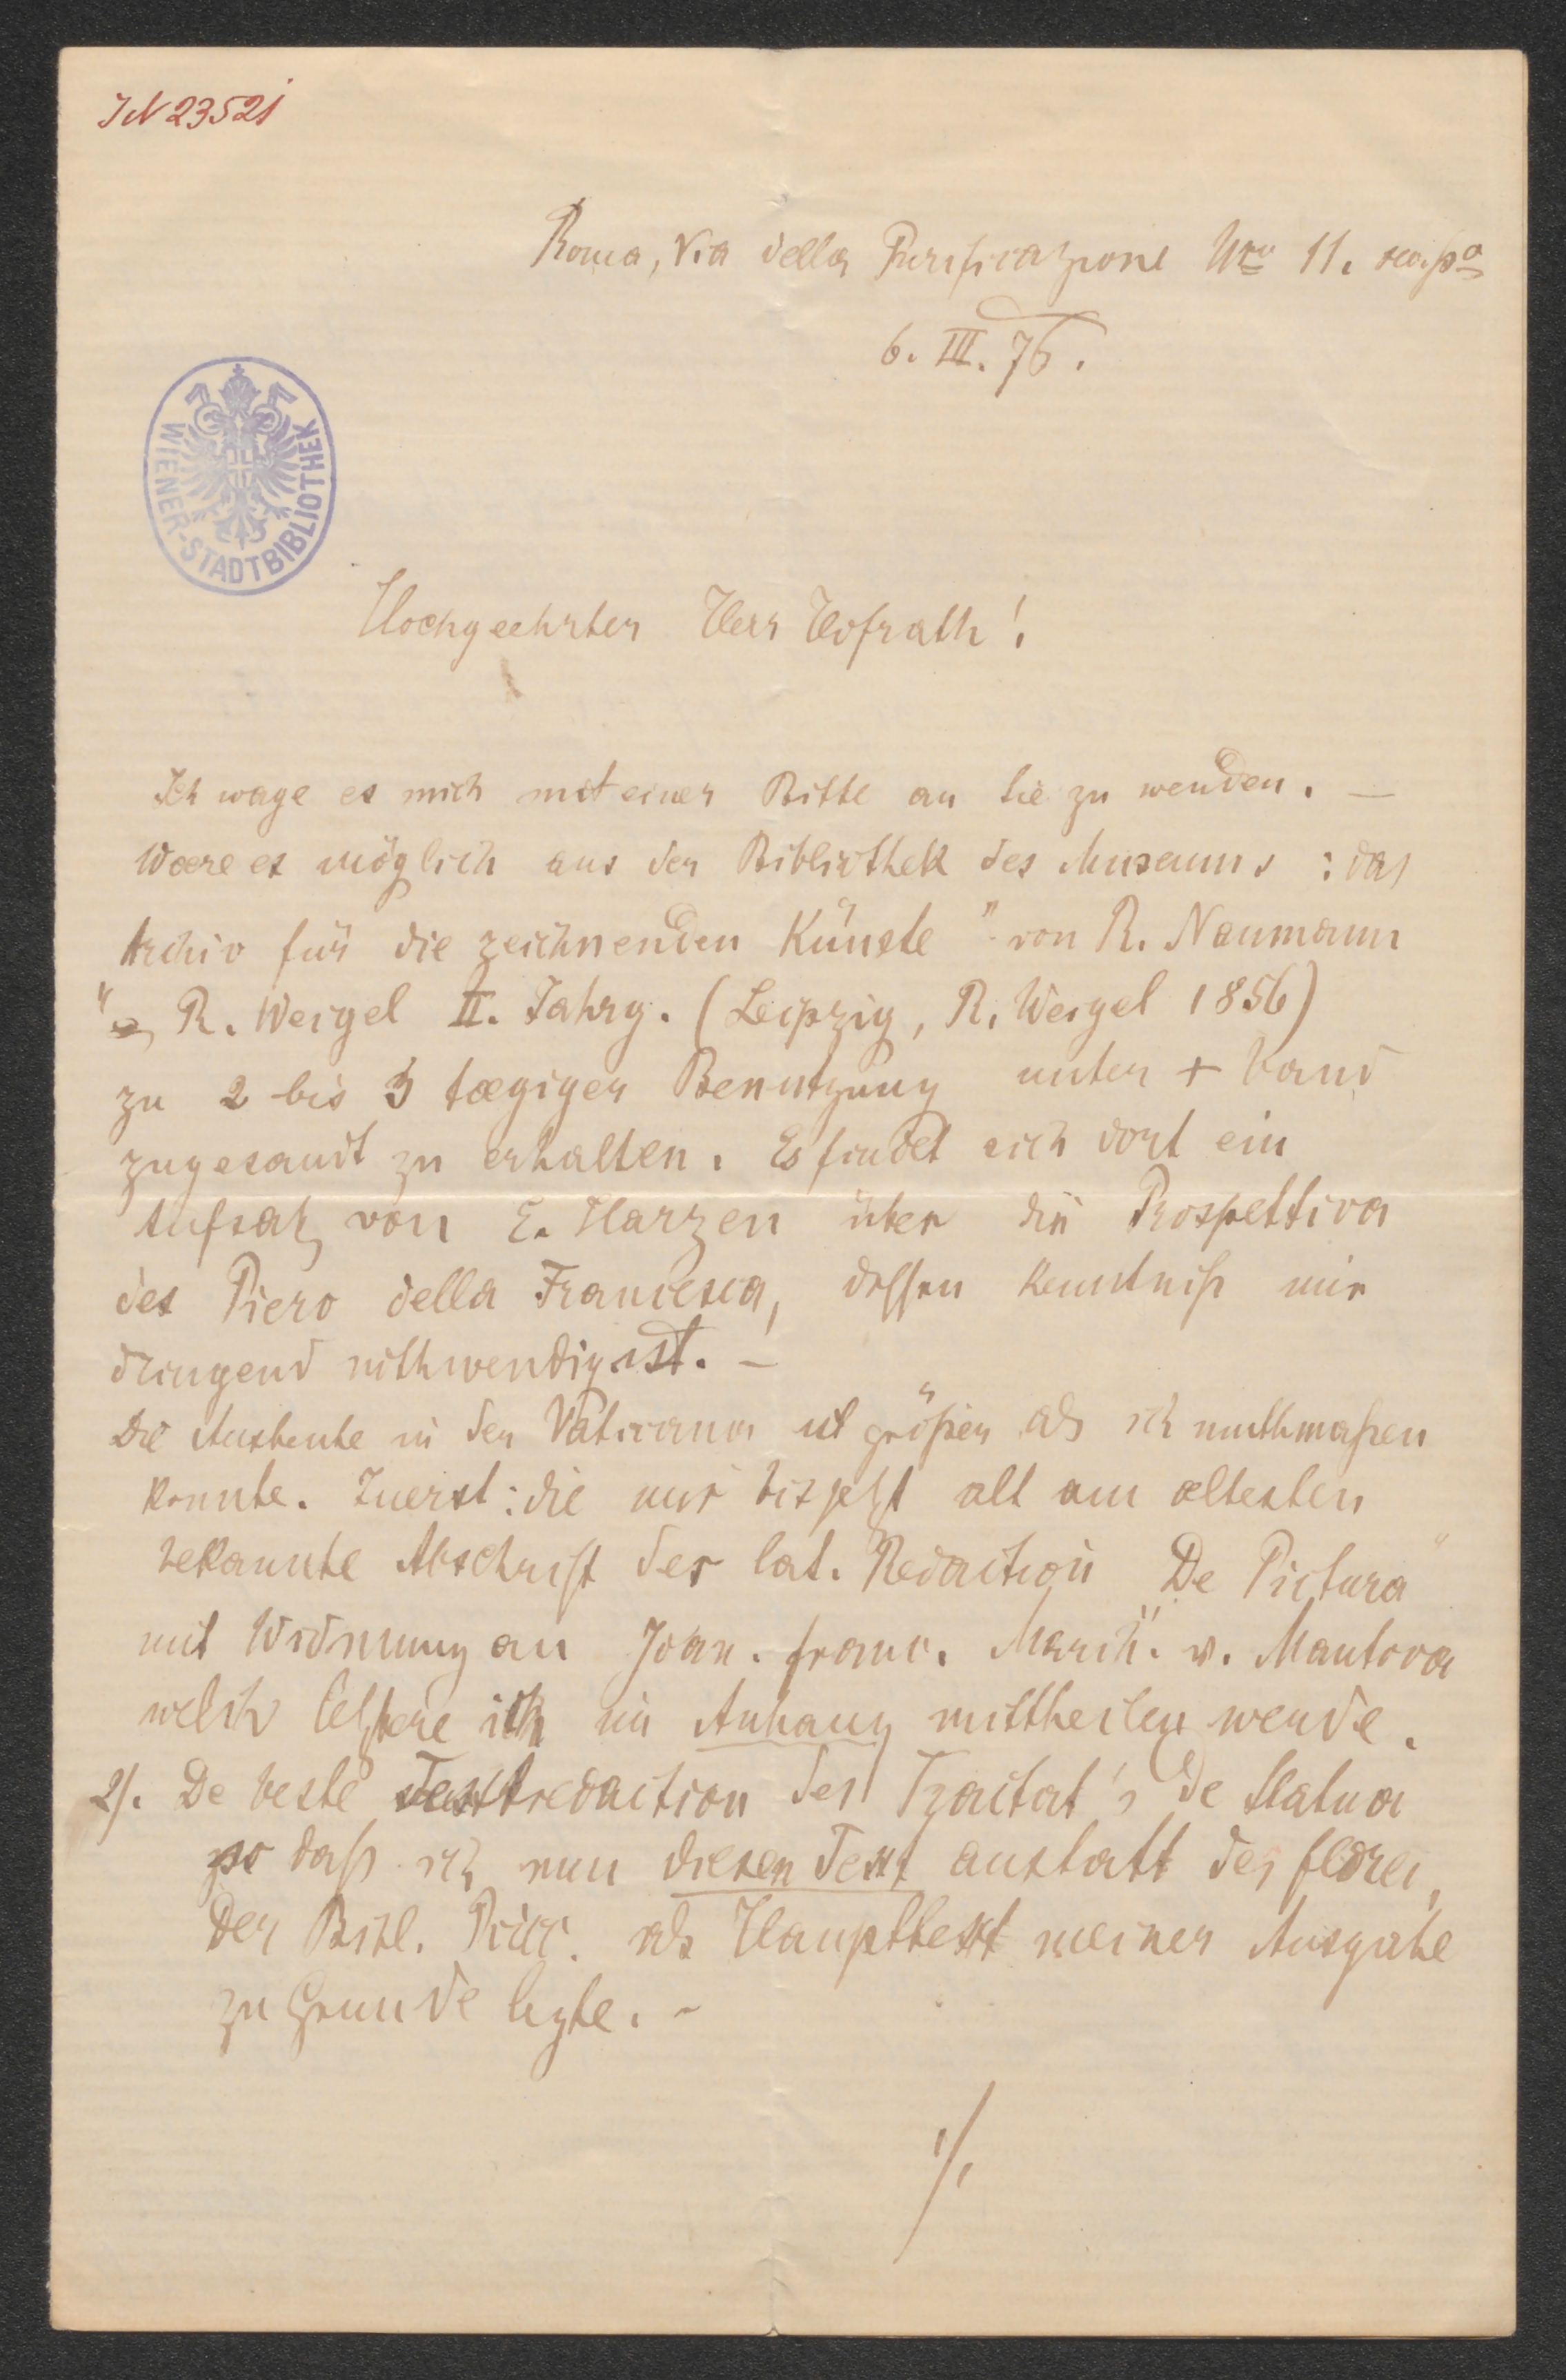 IN 23521
Roma, Via della Purificazione Nro 11.
6. III. 76.
WIENER-STADTBIBLIOTHEK
Hochgeehrter Herr Hofrath!
Ich wage es mich mit einer Bitte an Sie zu wenden. —
Waere es möglich aus der Bibliothek des Museums : das
Archiv für die zeichnenden Künste" von R. Naumann
" R. Weigel II. Jahrg. (Leipzig, R. Weigel 1856)
zu 2 bis 3 taegiger Benutzung unter + band
zugesandt zu erhalten. Es findet sich dort ein
Aufsatz von E. Harzen über die Prospettiva
des Piero della Francesca, dessen Kenntniß mir
dringend nothwendig ist. —
Die Ausbeute in der Vaticana ist größer als ich muthmaßen
konnte. Zuerst: die mir bis jetzt alt am aeltesten
bekannte Abschrift der lat. Redaction „De Pictura"
mit Widmung an Joan. Franc. March. v. Mantova
welch letztere ich im Anhang mittheilen werde.
2/. De beste Textredaction des Tractat's de Statua
so daß ich nun diesen Text anstatt des
der Bibl. Ricc. als Haupttext meiner Ausgabe
zu Grunde legte. –
./.